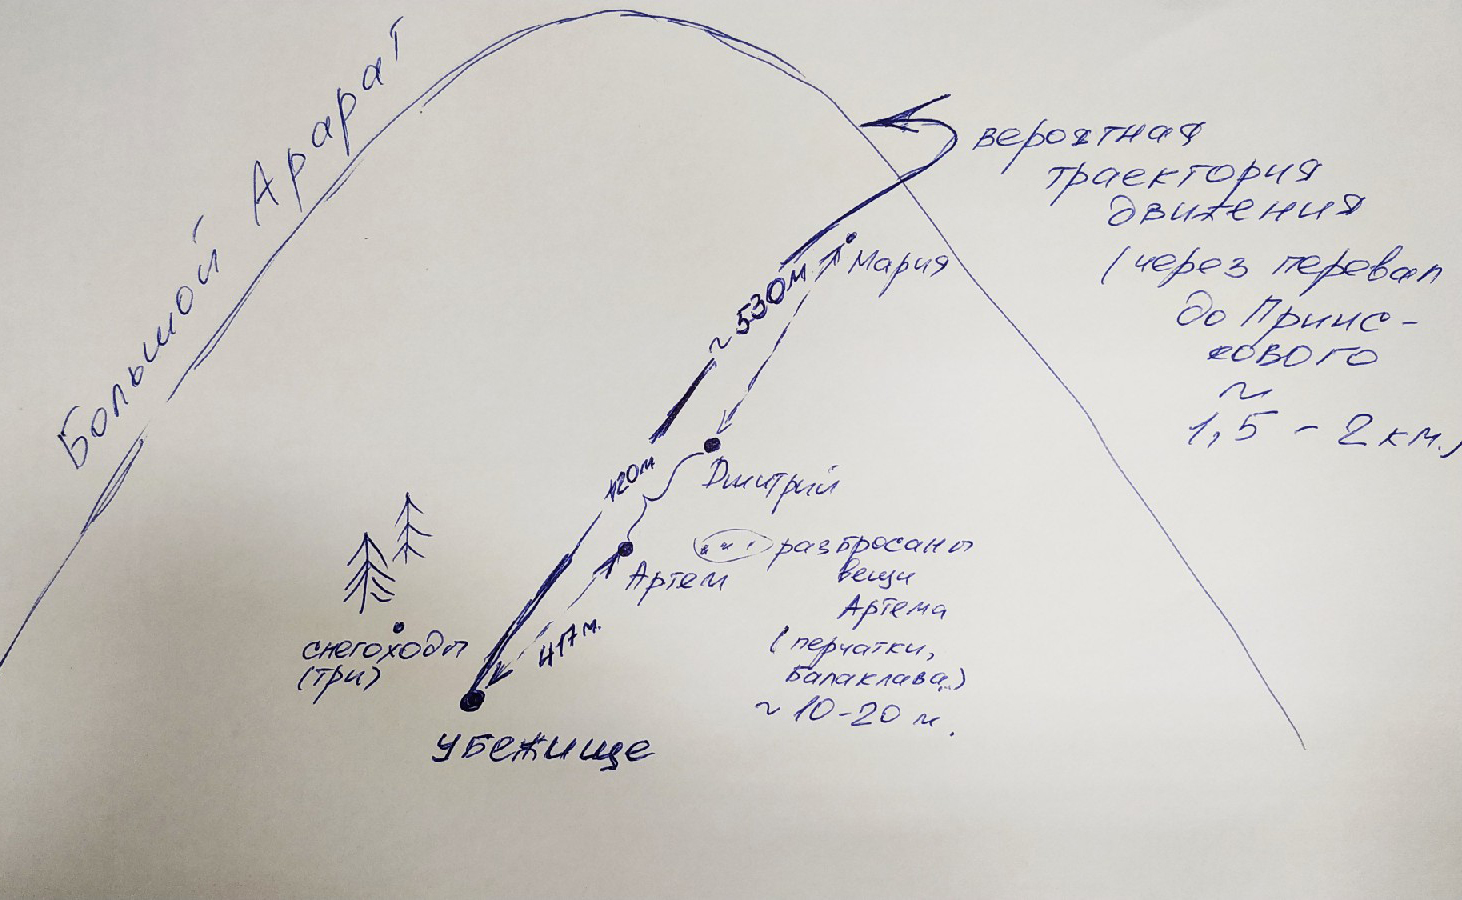 Большой Арарат
вероятная
траектория
движения
(через перевал
до Приис-
кового
~
1,5 - 2 км.)
Мария
~ 530 м
120 м
Дмитрий
Артем
417 м.
разбросаны
вещи
Артема
(перчатки,
балаклава..)
~ 10-20 м.
снегоходы
(три)
убежище